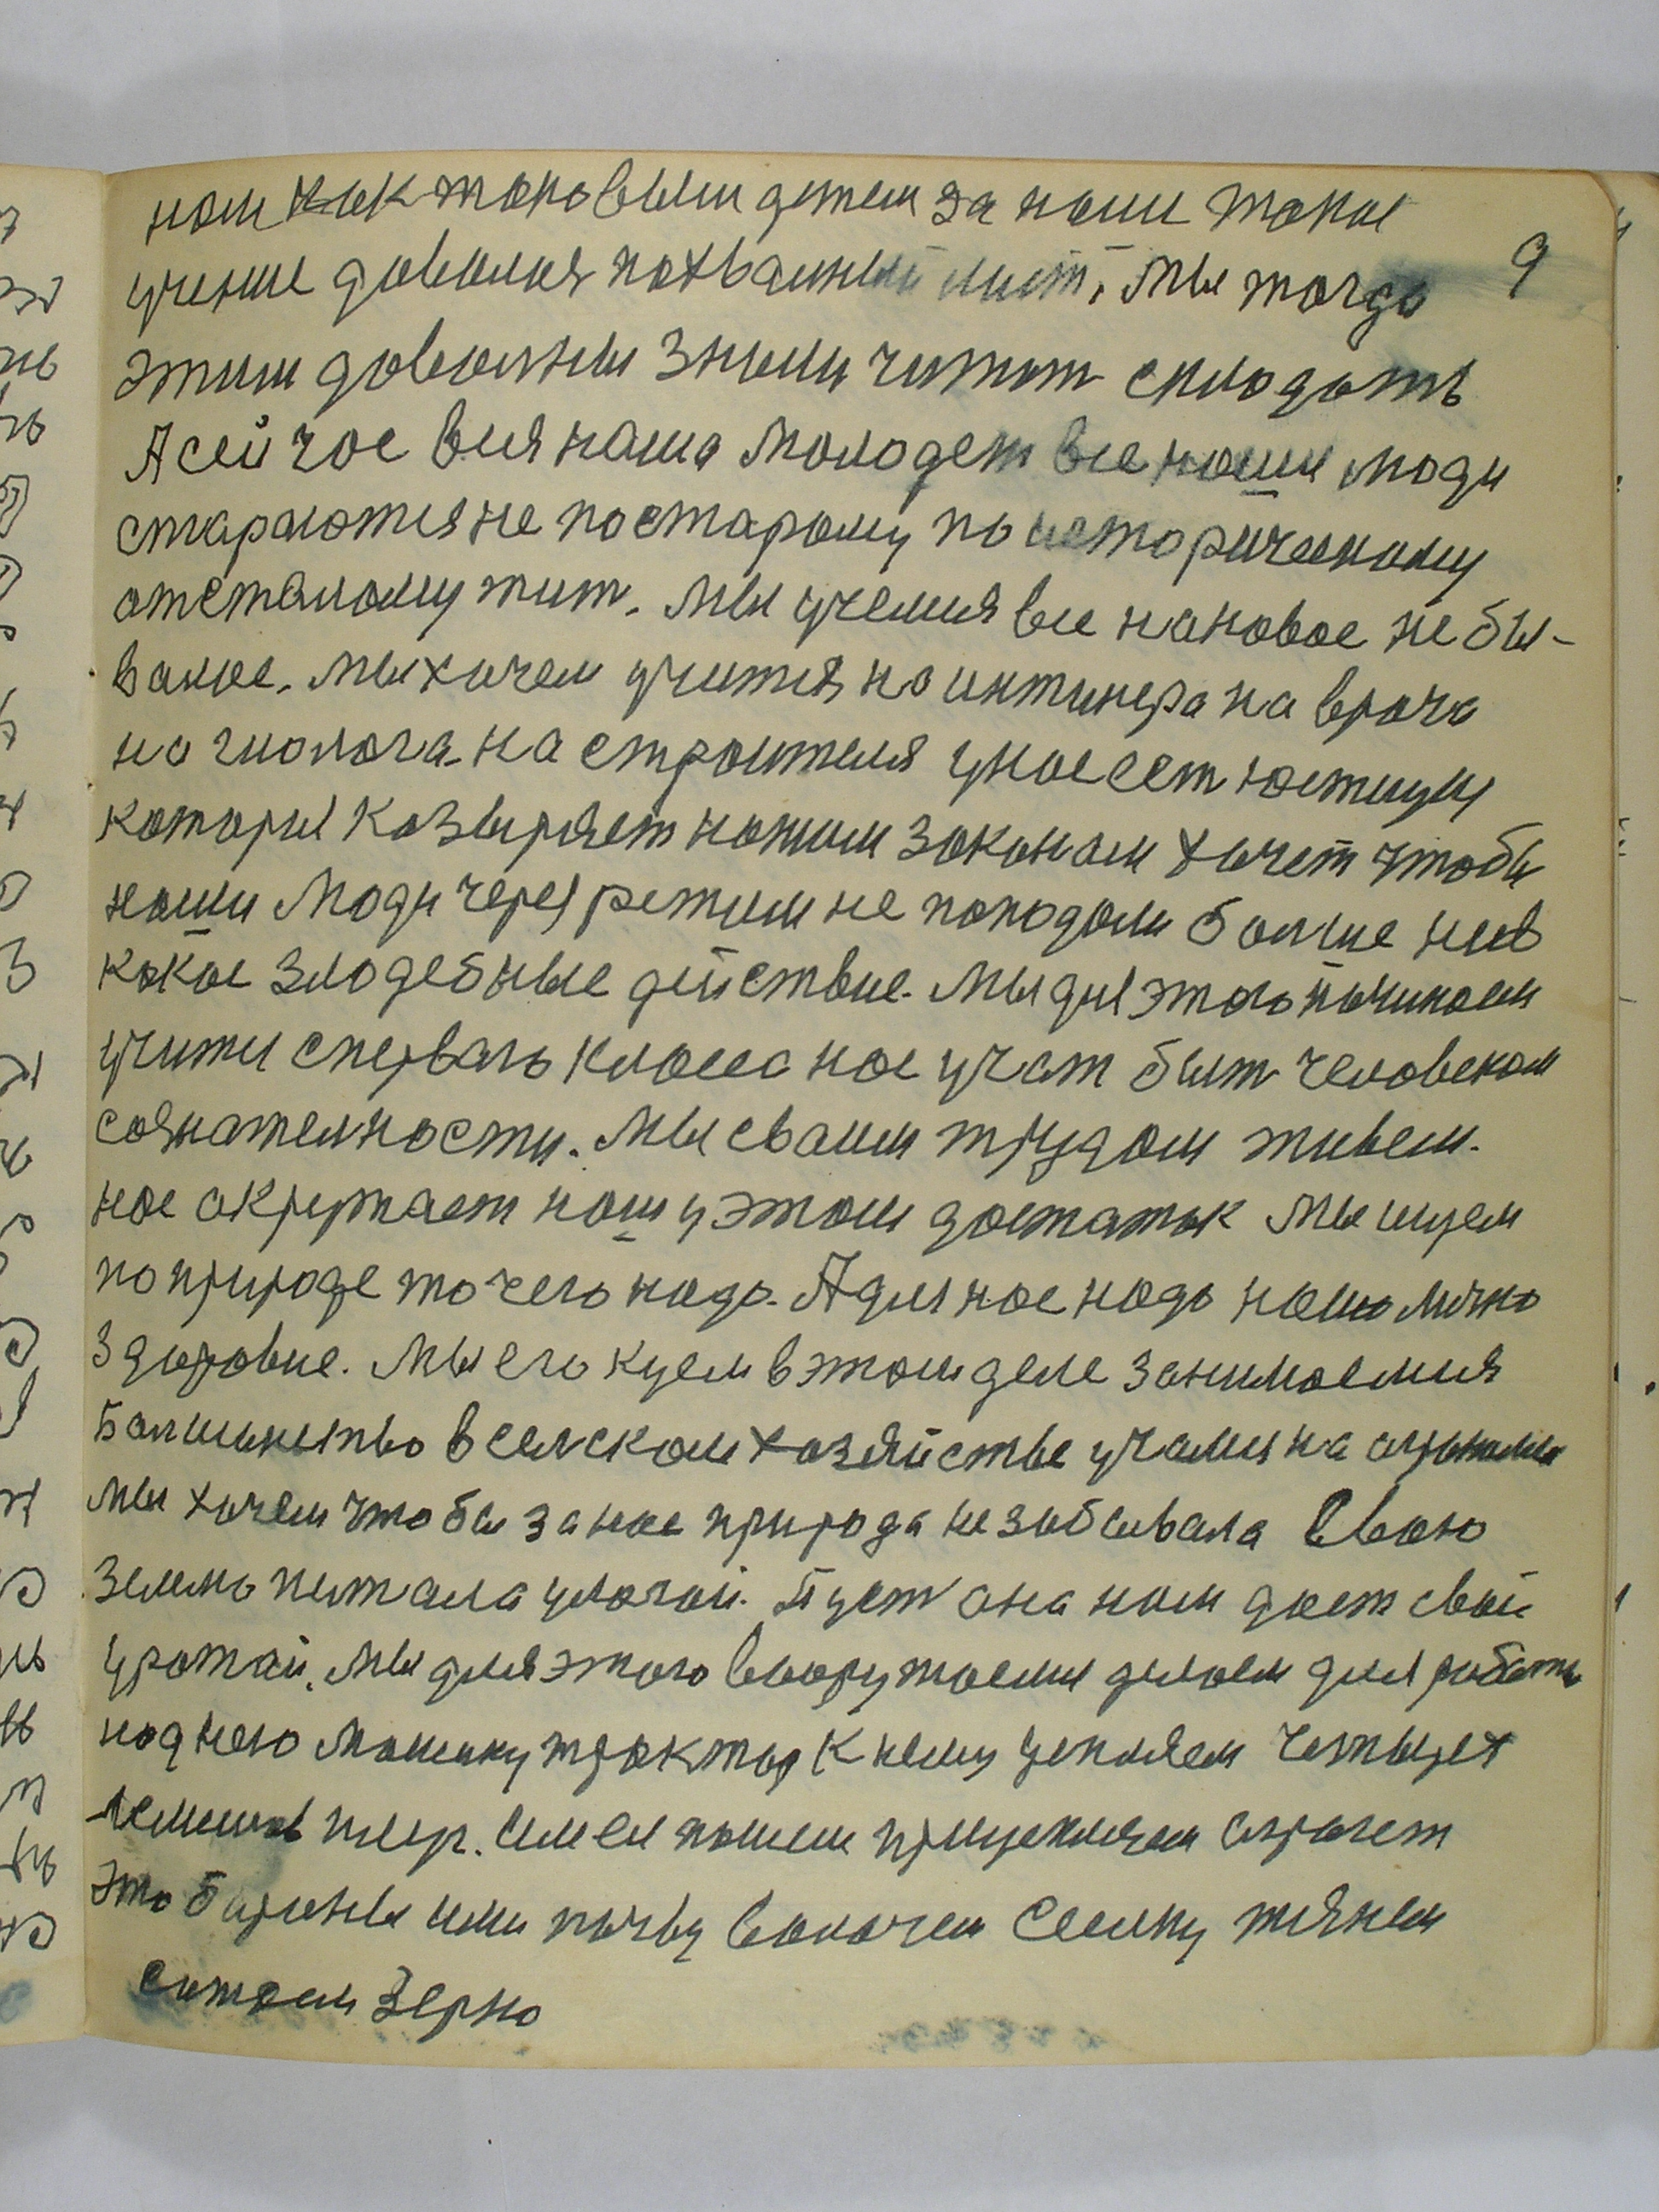 нам как таковым детем за наше такое
9
учение давался похвалный лист. Мы тогда
этим доволны знали читат складать
А сейчас вся наша молодеж все наши люди
стараются не постарому по историческому
отсталому жит. Мы учемся все нановое не бы-
валое. Мы хочем учится на инжинера на врача
на гиолога на строителя у нас ест юстицыя
которыя козыряет нашим законам хочет чтобы
наши люди через режим не попадали болше нив
какое злодебные действие. Мы для этого начинаем
учится сперваго класса нас учат быт человеком
сознателности. Мы сваим трудом живем.
нас акружает наш у этом достаток мы ищем
по природе то чего надо. А для нас надо нашо личко
здоровие. Мы его куем в этом деле занимаемся
Болшинство в селском хозяйстве учамся на агронома
мы хочем чтобы за нас природа не забывала Свою
землю питала улагой. Пуст она нам дает свой
урожай. Мы для этого вооружаемся делаем для работы
над нею машину трактор к нему цепляем четырех
лемешов плуг. Имем пашем прицепляем агрегат
это бароны ими почву волочем Сеялку тянем
сажаем Зерно